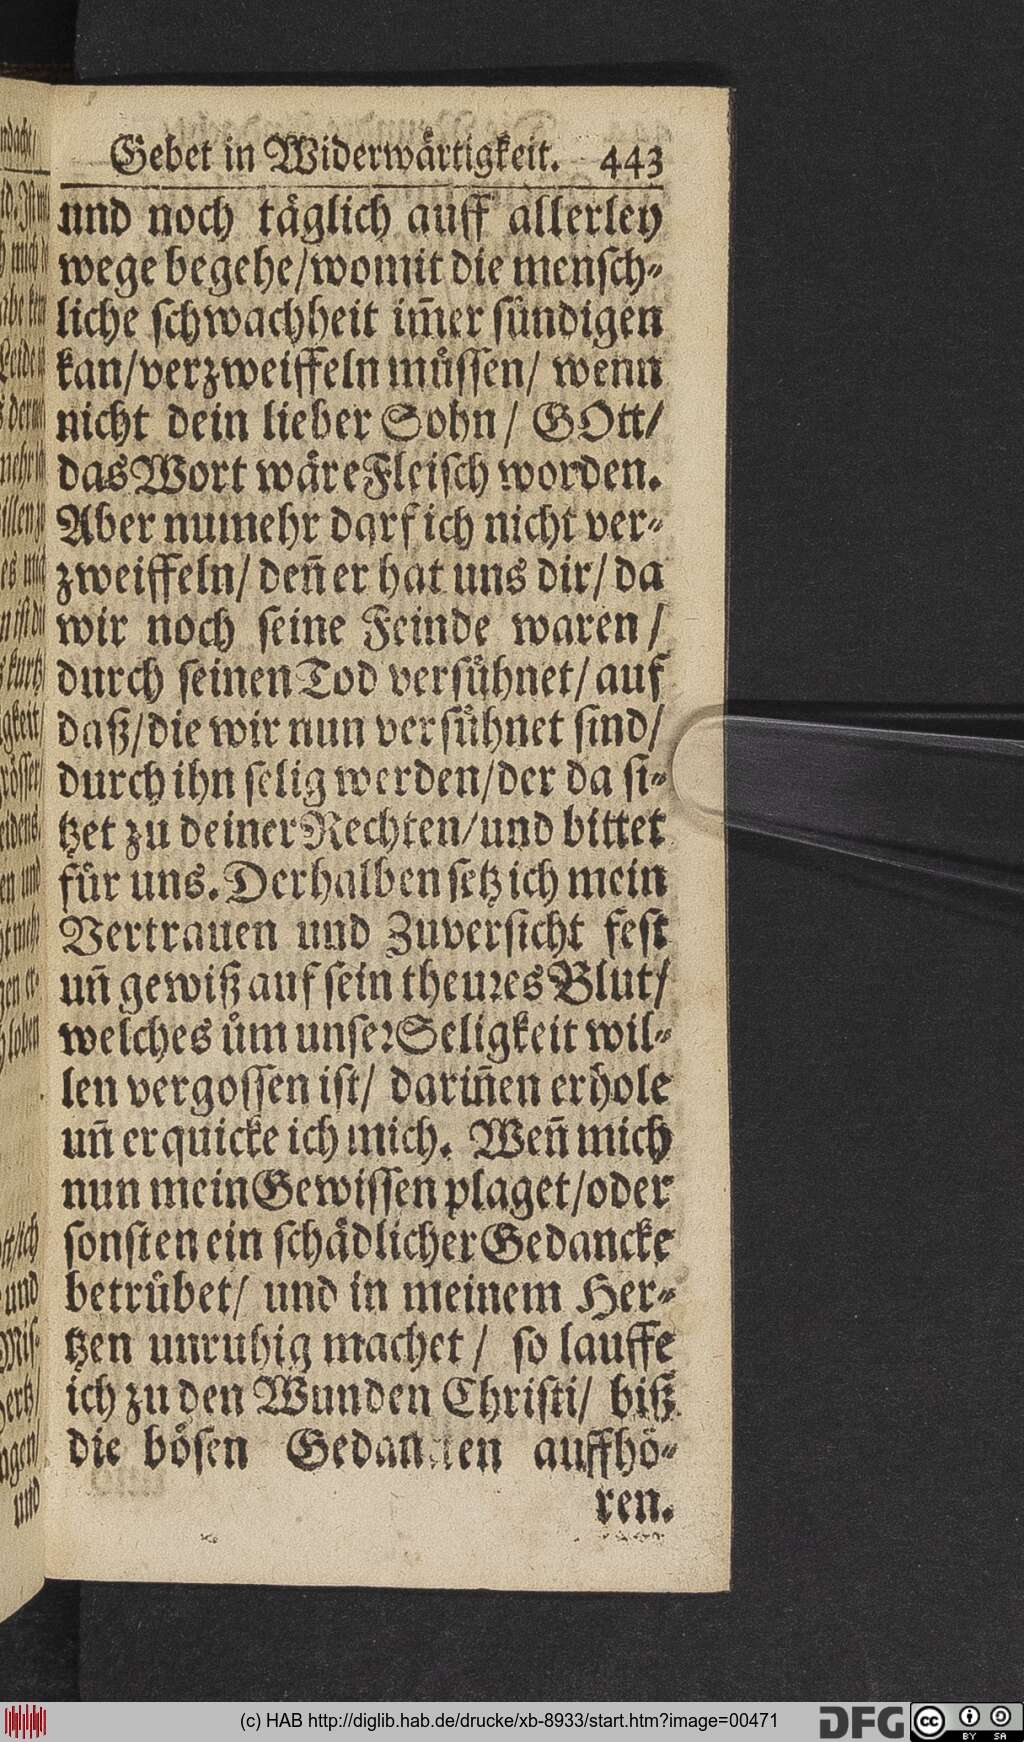 Gebet in Widerwärtigkeit. 443
und noch täglich auff allerley
wege begehe/womit die mensch-
liche schwachheit im̄er sündigen
kan/verzweiffeln müssen/ wenn
nicht dein lieber Sohn/ GOtt/
das Wort wäre Fleisch worden.
Aber numehr darf ich nicht ver-
zweiffeln/ den̄ er hat uns dir/ da
wir noch seine Feinde waren/
durch seinen Tod versühnet/ auf
daß/die wir nun versühnet sind/
durch ihn selig werden/der da si-
tzet zu deiner Rechten/und bittet
für uns. Derhalben setz ich mein
Vertrauen und Zuversicht fest
un̄ gewiß auf sein theures Blut/
welches üm unser Seligkeit wil-
len vergossen ist/ darin̄en erhole
un̄ erquicke ich mich. Wen̄ mich
nun mein Gewissen plaget/oder
sonsten ein schädlicher Gedancke
betrübet/ und in meinem Her-
tzen unruhig machet/ so lauffe
ich zu den Wunden Christi/ biß
die bösen Gedancken auffhö-
ren.
(c) HAB http://diglib.hab.de/drucke/xb-8933/start.htm?image=00471
DFG
cc BY SA